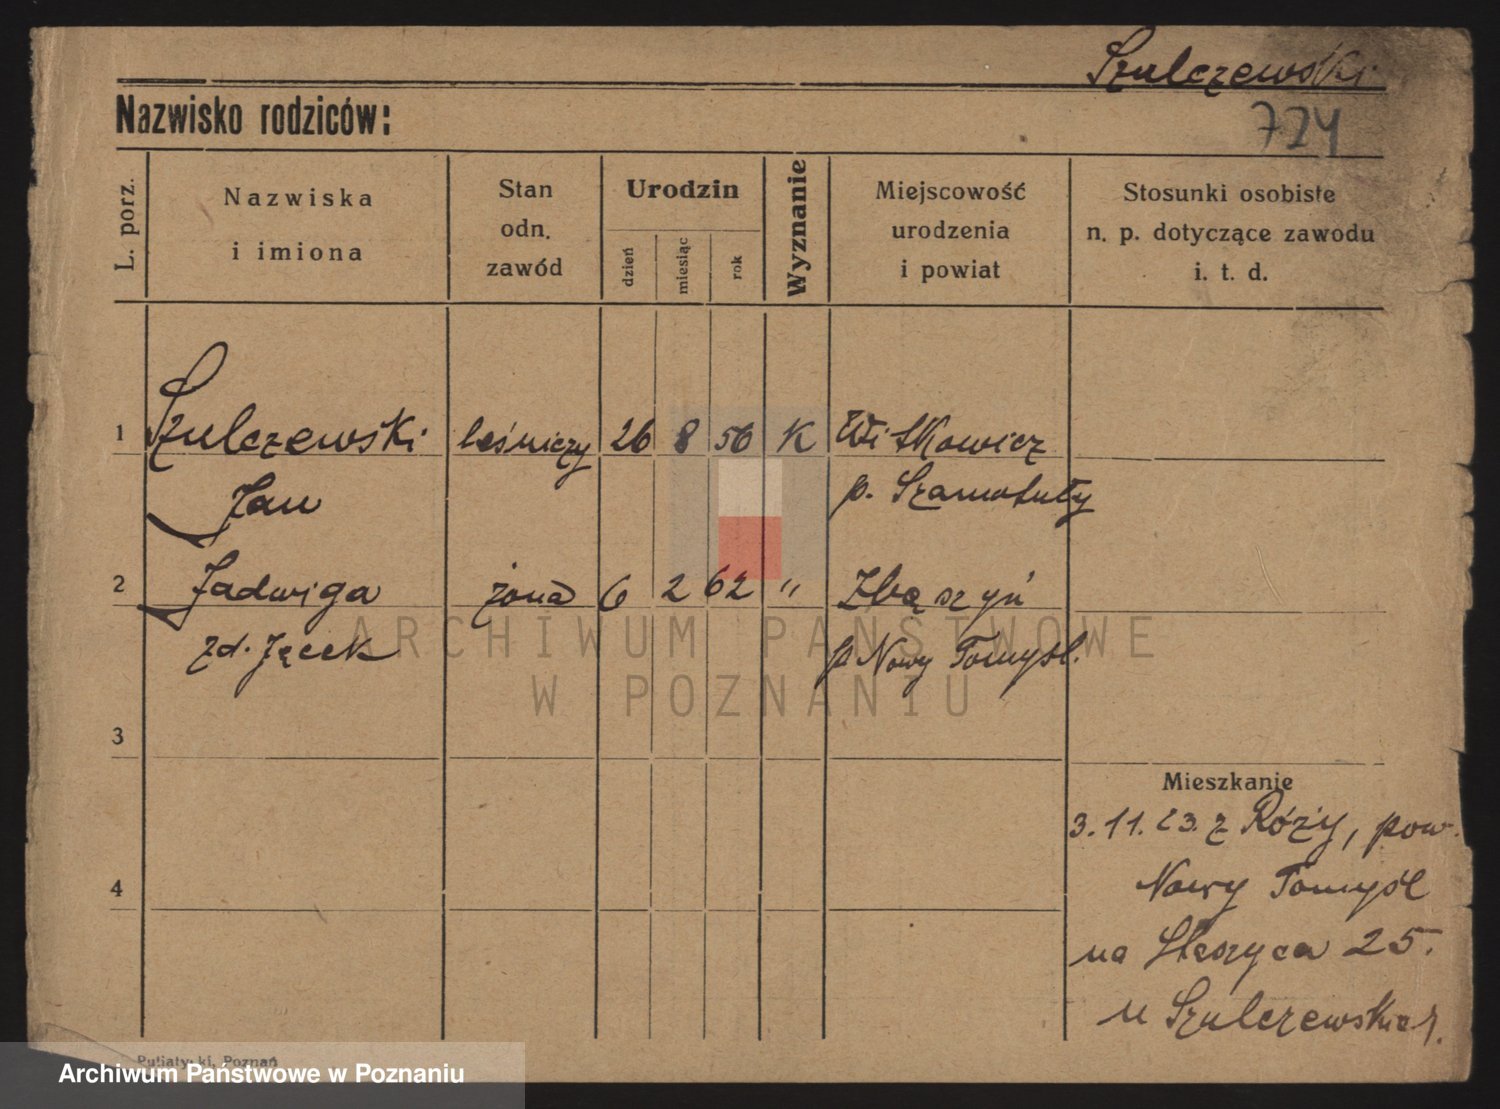 Szulczewski
Nazwisko rodziców:
724
L. porz.
Nazwiska
i imiona
Stan
odn.
zawód
Urodzin
dzień
miesiąc
rok
Wyznanie
Miejscowość
urodzenia
i powiat
Stosunki osobiste
n. p. dotyczące zawodu
i. t. d.
1 Szulczewski leśniczy 26 8 56 K Witkowicz
Jan p. Szamotuły
2 Jadwiga żona 6 2 62 " Zbąszyń
zd. Jęcek p Nowy Tomyśl.
ARCHIWUM PAŃSTWOWE
W POZNANIU
3
Mieszkanie
3.11.23. z Róży, pow.
4
Nowy Tomyśl
na 25.
u
Putiatycki, Poznań
Archiwum Państwowe w Poznaniu